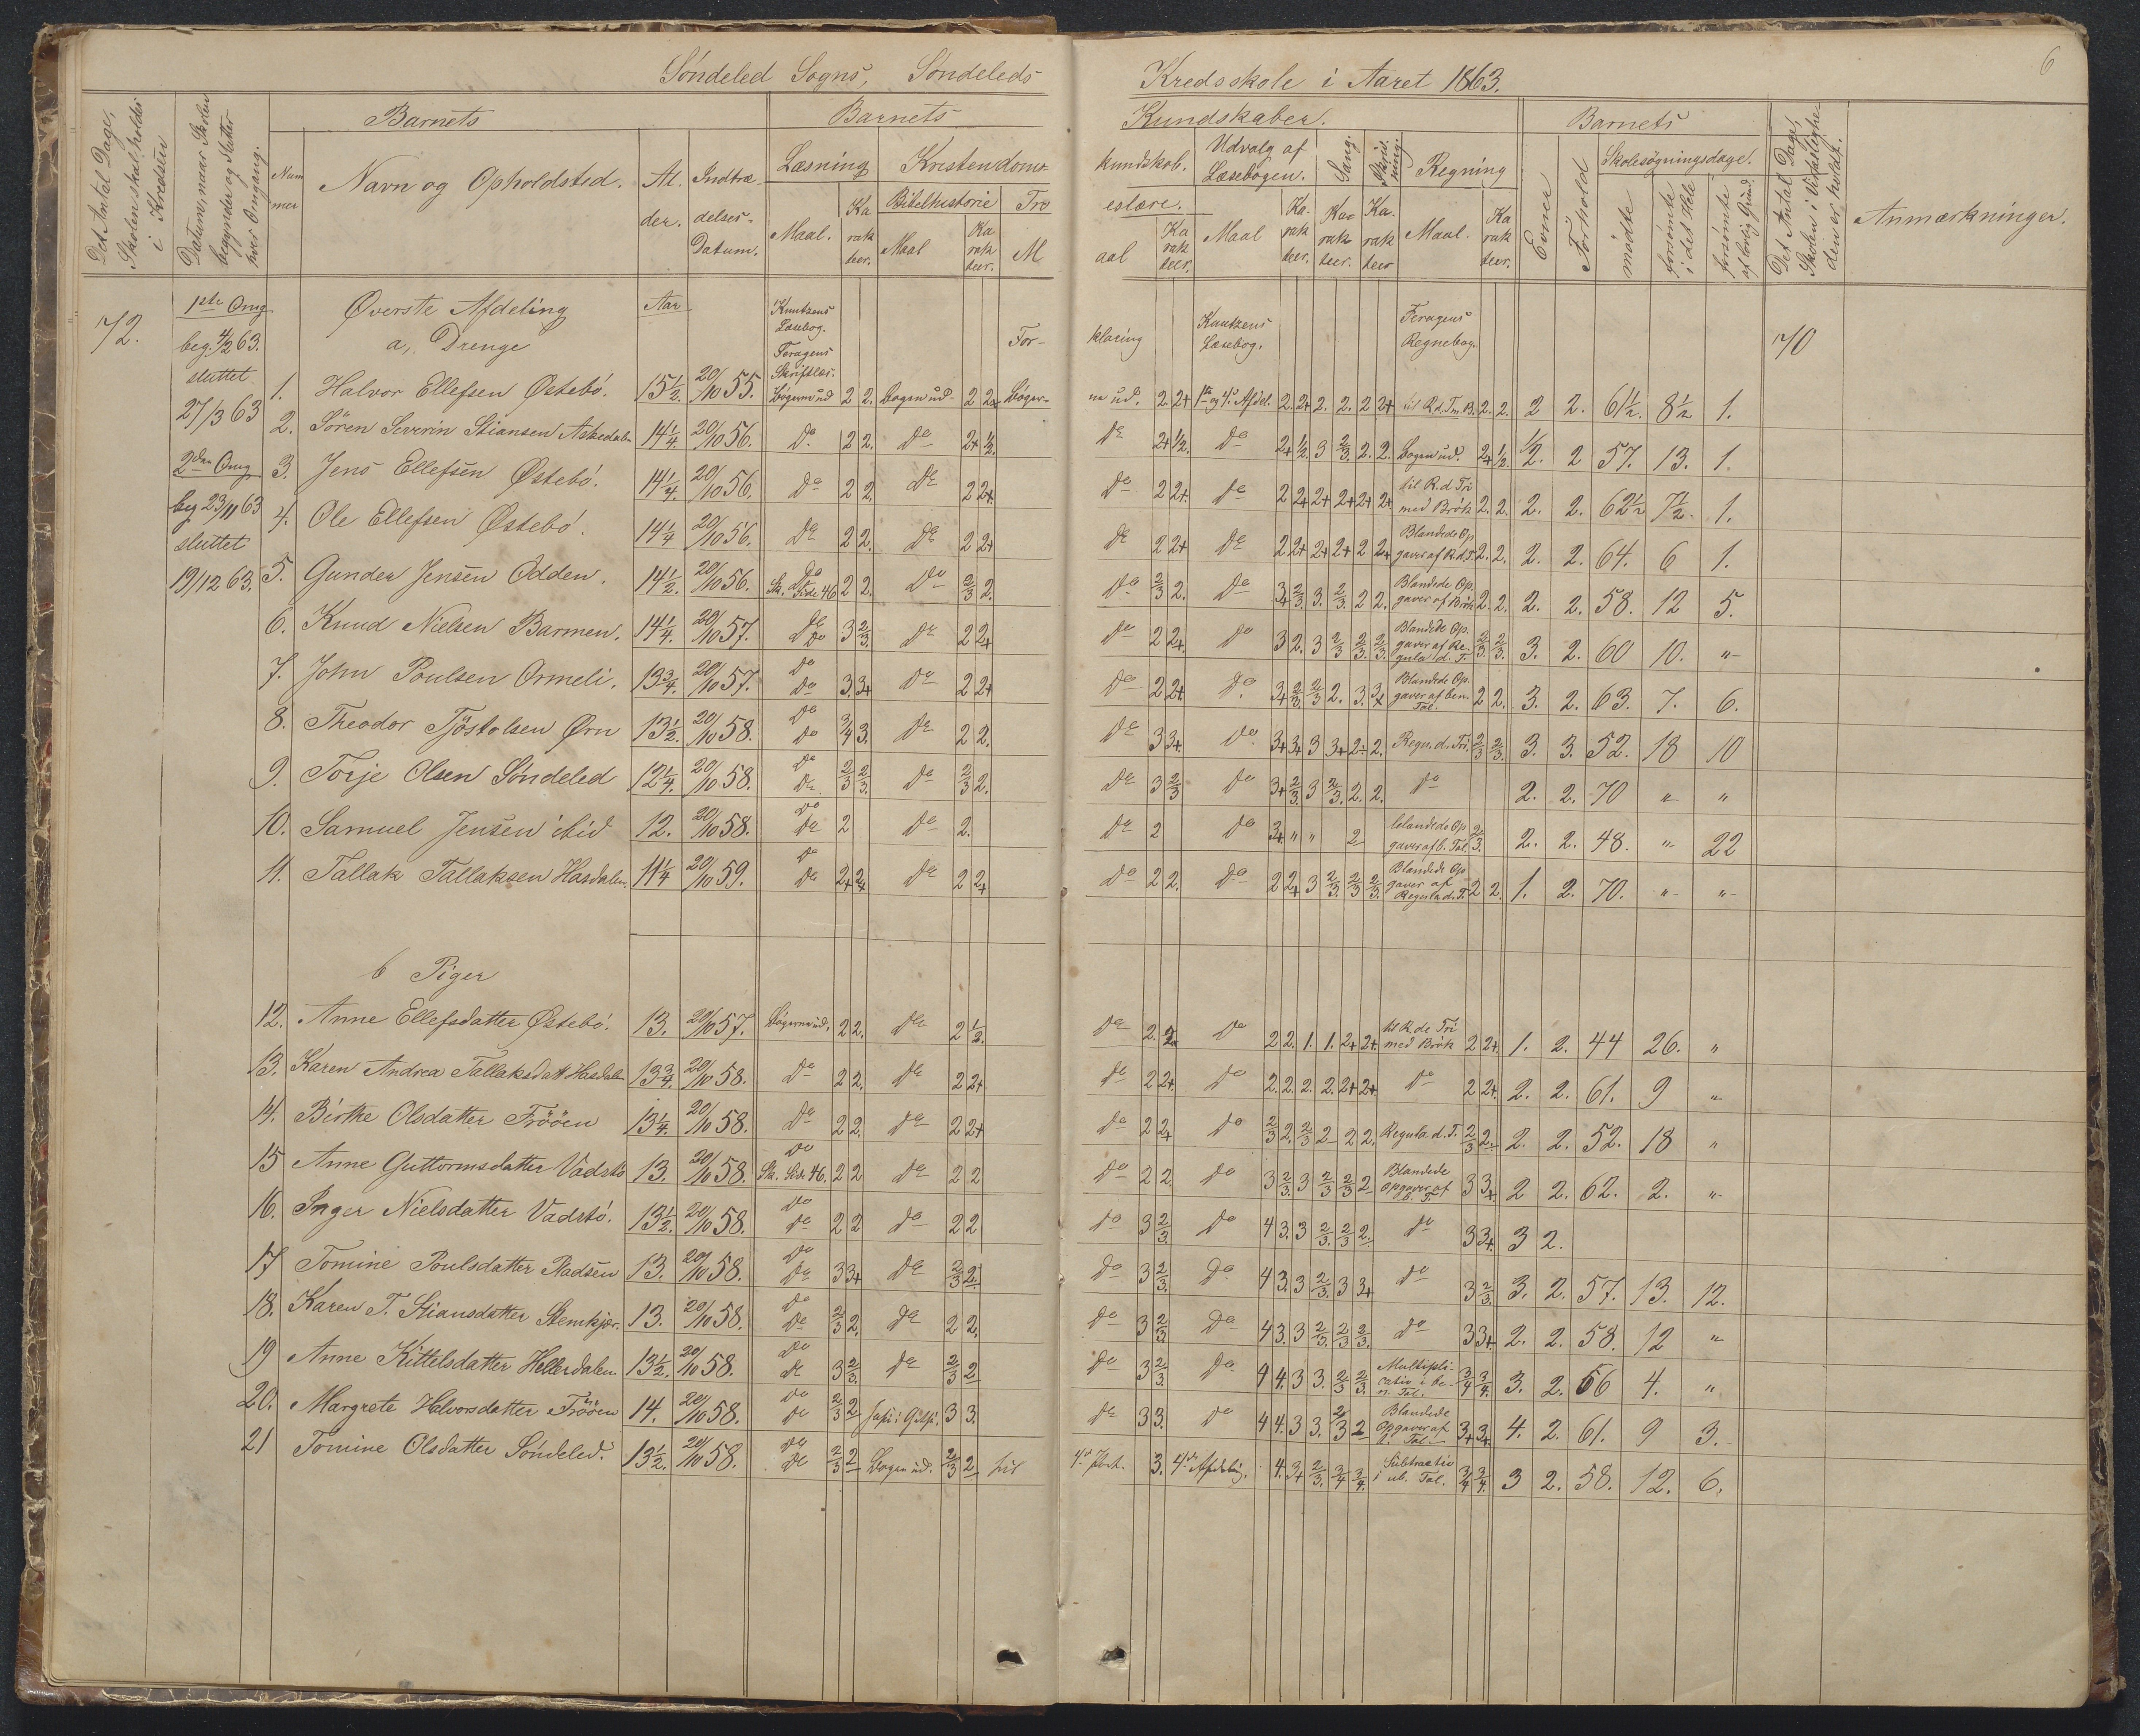 Söndeled Sogns, Söndeleds Kredsskole i Aaret 1863.
6
Det Antal Dage, Skolen skal holdes i Kredsen
Datum, naar Skolen begynder og slutter hver Omgang.
Barnets
Nummer
Navn og Opholdsted.
Alder.
Indtrædelses-Datum.
Barnets Kundskaber.
Læsning
Maal.
Karakteer.
Kristendomskundskab.
Bibelhistorie
Maal
Karakteer.
Troeslære.
Maal
Karakteer.
Udvalg af Læsebogen.
Maal
Karakteer.
Sang.
Karakteer.
Skrivning.
Karakteer
Regning
Maal.
Karakteer.
Barnets
Evner
Forhold
Skolesøgningsdage.
mødte
forsömte i det Hele
forsömte af lovlig Grund.
Det Antal Dage, Skolen i Virkeligheden er holdt.
Anmærkninger.
72.
1ste Omg
beg. 4/2 63.
sluttet
27/3 63
2den Omg
beg 23/11 63
sluttet
19/12 63.
Øverste Afdeling
Aar
Knutzens Læsebog.
Foragens Skriftlæs.
For-klaring
Knutzens Læsebog.
Foragens Regnebog.
70
a, Drenge
1. Halvor Ellefsen Østebö. 15½. 20/10 55. Bögerne ud 2 2. Bogen ud. 2 2+ Böger-ne ud. 2. 2+ 1ste og 4. Afdel. 2. 2+ 2. 2. 2 2+ til R.d.Tm.B. 2. 2. 2 2. 61½. 8½ 1.
2. Sören Severin Stiansen Askedalen 14¼. 20/10 56. do 2 2. do 2+ ½. do 2+ ½. do 2+ ½. 3 2/3. 2. 2. Bogen ud. 2+ ½. ½. 2 57. 13. 1.
3. Jens Ellefsen Østebö. 14¼. 20/10 56. do 2 2. do 2 2+. do 2 2+. do 2 2+ 2+ 2+ 2+ 2+ til R.d Tri med Brök 2. 2. 2. 2. 62½ 7½. 1.
4. Ole Ellefsen Østebö. 14¼ 20/10 56. do 2 2. do 2 2+ do 2 2+ do 2 2+ 2+ 2+ 2 2+ Blandede Opgaver af R.d.T. 2. 2. 2. 2. 64. 6 1.
5. Gunder Jensen Odden. 14½. 20/10 56. do Sk. Side 46 2 2. do 2/3 2. do 2/3 2. do 3+ 2/3. 3. 2/3. 2 2. Blandede Opgaver af Brök 2. 2. 2. 2. 58. 12 5.
6. Knud Nielsen Barmen. 14¼. 20/10 57. do do 3 2/3. do 2 2+ do 2 2+. do 3 2. 3 2/3 2/3. 2/3. Blandede Opgaver af Regula d. T. 2/3. 2/3. 3. 2. 60 10. "
7. John Poulsen Ormeli. 13¾. 20/10 57. do do 3. 3+ do 2 2+ do 2 2+. do. 3+ 2/3. 2/3 2. 3. 3+ Blandede Opgaver af ben. Tal. 2 2. 3. 2. 63. 7. 6.
8. Theodor Tjöstolsen Ørn 13½. 20/10 58. do do 3/4 3. do 2 2. do 3 3+. do. 3+ 3+ 3 3+ 2÷ 2. Regu. d. Tri. 2/3 2/3. 3. 3. 52. 18 10
9. Torje Olsen Söndeled 12¼. 20/10 58. do do. 2/3 2/3. do 2/3 2. do 3 2/3 do 3+ 2/3. 3 2/3. 2. 2. do 2. 2. 70 " "
10. Samuel Jensen ibid 12. 20/10 58. do do 2 do 2. do 2 do 3+ " " 2 blandede Opgaver af b. Tal. 2/3. 2. 2. 48. " 22
11. Tallak Tallaksen Hasdalen. 11¼ 20/10 59. do do 2+ 2+ do 2 2+ do 2 2. do 2 2+ 3 2/3. 2/3 2/3. Blandede Opgaver af Regula d. T. 2 2. 1. 2. 70. " "
b Piger
12. Anne Ellefsdatter Østebö. 13. 20/10 57. Bögerne ud. 2 2. do 2 ½. do 2. 2+ do 2 2. 1. 1. 2+ 2+. til R. de Tri med Brök 2 2+. 1. 2. 44 26. "
13. Karen Andrea Tallaksdatt Hasdalen 13¾. 20/10 58. do 2 2. do 2 2+ do 2 2+. do 2. 2. 2. 2. 2+ 2+ do 2 2+. 2. 2. 61. 9 "
14. Birthe Olsdatter Frööen 13¼. 20/10 58. do 2 2. do 2 2+ do 2 2+ do 2/3 2. 2/3 2 2 2. Regula. d. T. 2/3 2. 2. 2. 52. 18 "
15 Anne Guttormsdatter Vadstö 13. 20/10 58. do Sk. Side 46. 2 2 do 2 2 do 2 2. do 3 2/3. 3 2/3 2/3 2 Blandede Opgaver af b. T. 3 3+. 2 2. 62. 2. "
16. Inger Nielsdatter Vadstö. 13½. 20/10 58. do do 2 2 do 2 2 do 3 2/3. do 4 3. 3 2/3. 2/3 2. do 3 3+. 3 2.
17 Tomine Poulsdatter Pladsen 13. 20/10 58. do do 3 3+ do 2/3 2. do 3 2/3. do. 4 3. 3 2/3. 3 3+ do 3 2/3. 3. 2. 57. 13. 12.
18. Karen T. Stiansdatter Stemkjær. 13. 20/10 58. do do 2/3 2. do 2 2. do 3 2/3. do 4 3. 3 2/3. 2/3 2/3. do 3 3+. 2. 2. 58. 12 "
19 Anne Kittelsdatter Hellerdalen. 13½. 20/10 58. do do 3 2/3. do 2/3 2 do 3 2/3. do 4 4. 3 3. 2/3 2/3. Multiplication i ben. Tal. 3/4 3/4. 3. 2. 66 4. "
20. Margrete Halvorsdatter Frööen 14. 20/10 58. do do 2/3 2 3 3. do 3 3. do 4 4. 3 3. 3 2 Blandede Opgaver af b. Tal. 3+ 3+. 4. 2. 61. 9 3.
21 Tomine Olsdatter Söndeled. 13½. 20/10 58. do do 2/3 2 Bogen ud. 2/3 2 til 4. Part. 3. 4de Afdeling. 4. 3+ 2/3. 3/4 3/4. Subtraction i ub. Tal. 3/4 3/4. 3 2. 58. 12. 6.